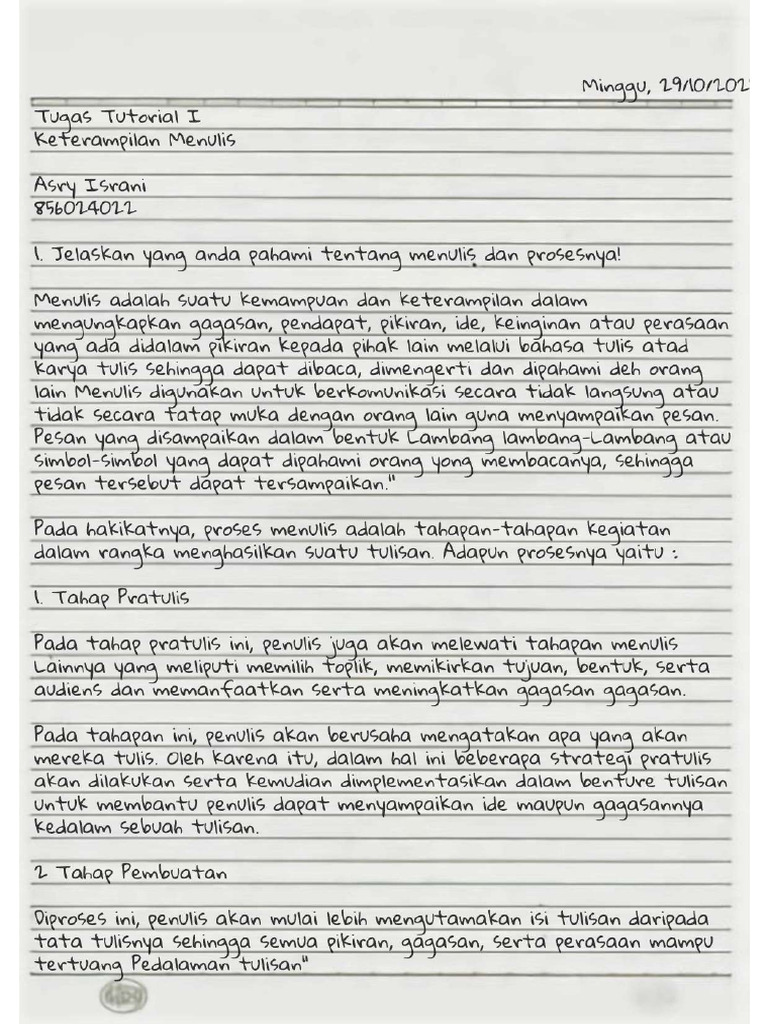 Minggu, 29/10/202
Tugas Tutorial I
Keterampilan Menulis
Asry Israni
856024022
1. Jelaskan yang anda pahami tentang menulis dan prosesnya!
Menulis adalah suatu kemampuan dan keterampilan dalam
mengungkapkan gagasan, pendapat, pikiran, ide, keinginan atau perasaan
yang ada didalam pikiran kepada pihak lain melalui bahasa tulis atad
karya tulis sehingga dapat dibaca, dimengerti dan dipahami deh orang
lain Menulis digunakan untuk berkomunikasi secara tidak langsung atau
tidak secara tatap muka dengan orang lain guna menyampaikan pesan.
Pesan yang disampaikan dalam bentuk Lambang lambang-Lambang atau
simbol-simbol yang dapat dipahami orang yong membacanya, sehingga
pesan tersebut dapat tersampaikan."
Pada hakikatnya, proses menulis adalah tahapan-tahapan kegiatan
dalam rangka menghasilkan suatu tulisan. Adapun prosesnya yaitu :
1. Tahap Pratulis
Pada tahap pratulis ini, penulis juga akan melewati tahapan menulis
Lainnya yang meliputi memilih toplik, memikirkan tujuan, bentuk, serta
audiens dan memanfaatkan serta meningkatkan gagasan gagasan.
Pada tahapan ini, penulis akan berusaha mengatakan apa yang akan
mereka tulis. Oleh karena itu, dalam hal ini beberapa strategi pratulis
akan dilakukan serta kemudian dimplementasikan dalam benture tulisan
untuk membantu penulis dapat menyampaikan ide maupun gagasannya
kedalam sebuah tulisan.
2 Tahap Pembuatan
Diproses ini, penulis akan mulai lebih mengutamakan isi tulisan daripada
tata tulisnya sehingga semua pikiran, gagasan, serta perasaan mampu
tertuang Pedalaman tulisan"